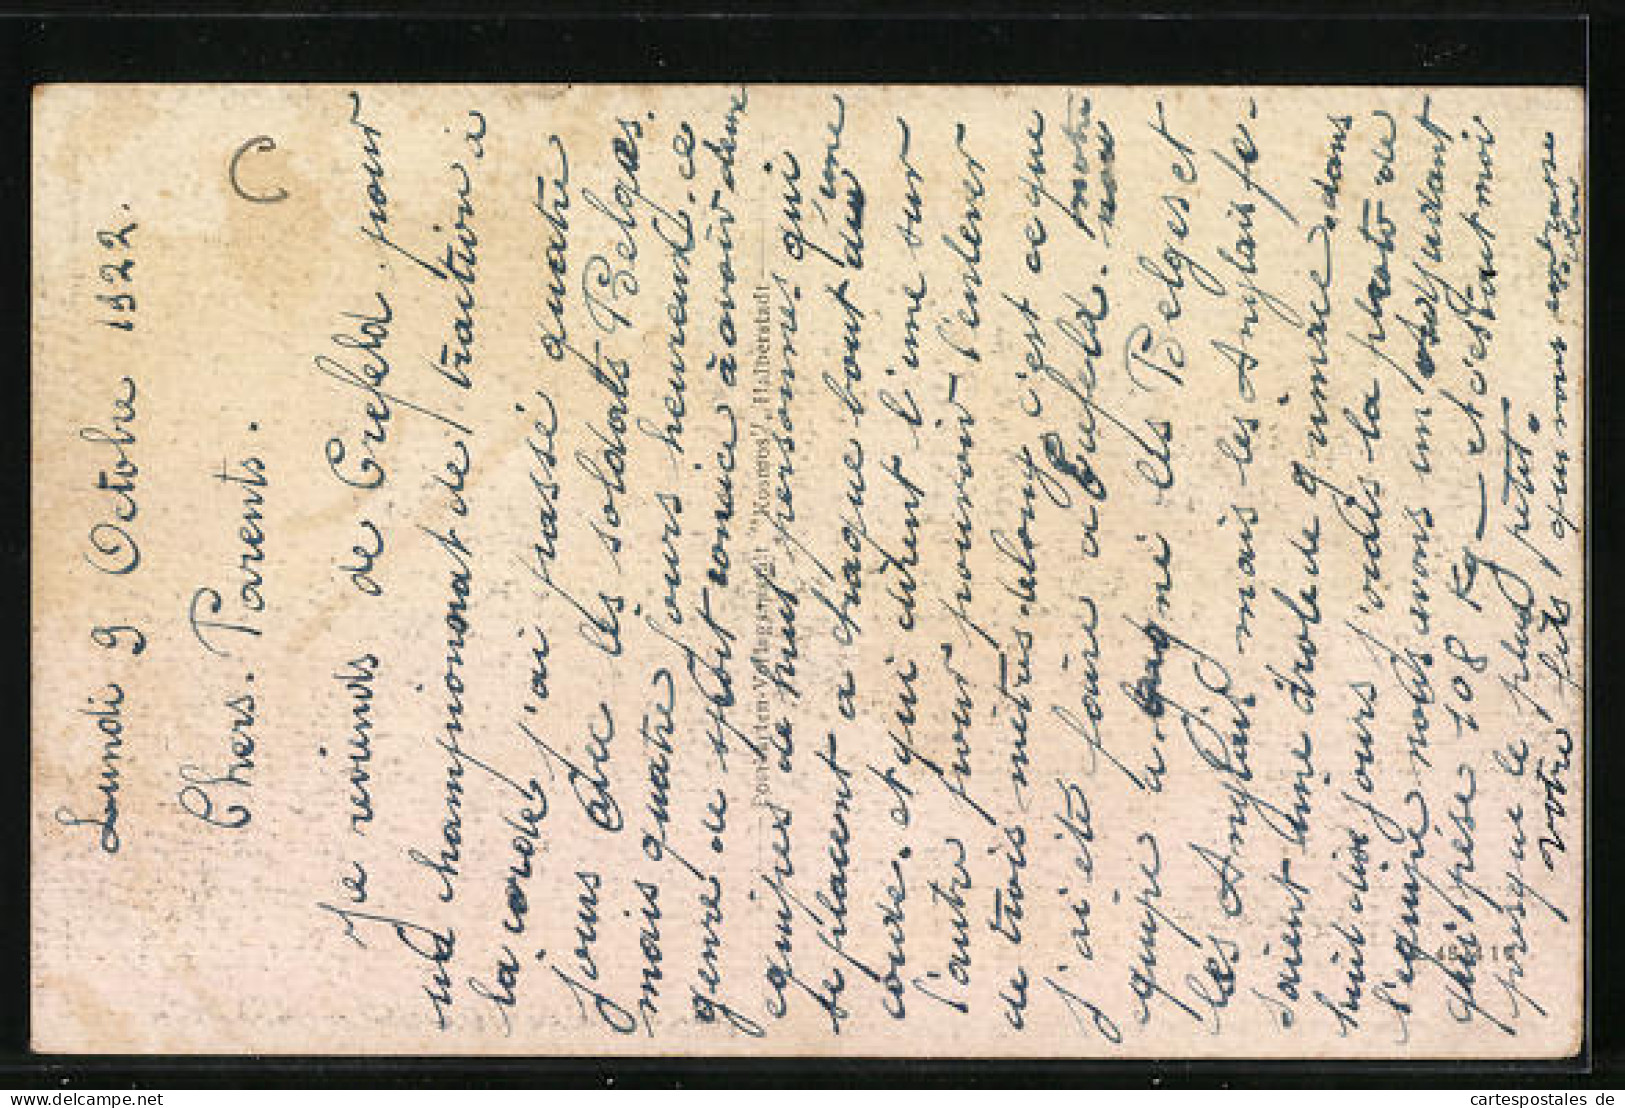 Lundi 9 Octobre 1922.
Chers. Parents.
C
Je reviends de Crefeld pour
une championnat de traction à
la corde j'ai passé quatre
jours avec les soldats Belges.
mais quatre jours heureux. ce
genre de sport consice à avoir deux
equipes de huit personnes qui
se placent a chaque bout d'une
corde. et qui tirent l'une sur
l'autre pour pouvoir l'enlever
de trois mètres de long c'est ce que
j'ai été faire a Crefeld. notre
equipe a gagné les Belges et
les Anglais mais les Anglais fe-
saient une drole de grimace, dans
huit dix jours j'orais la photo de
l'equipe nous avons un adjudant
qui pèse 108 Kg — et c'estaut moi
presque le plus petit.
Votre fils qui vous embrasse
Postkarten-Verlagsanstalt "Kosmos", Halberstadt